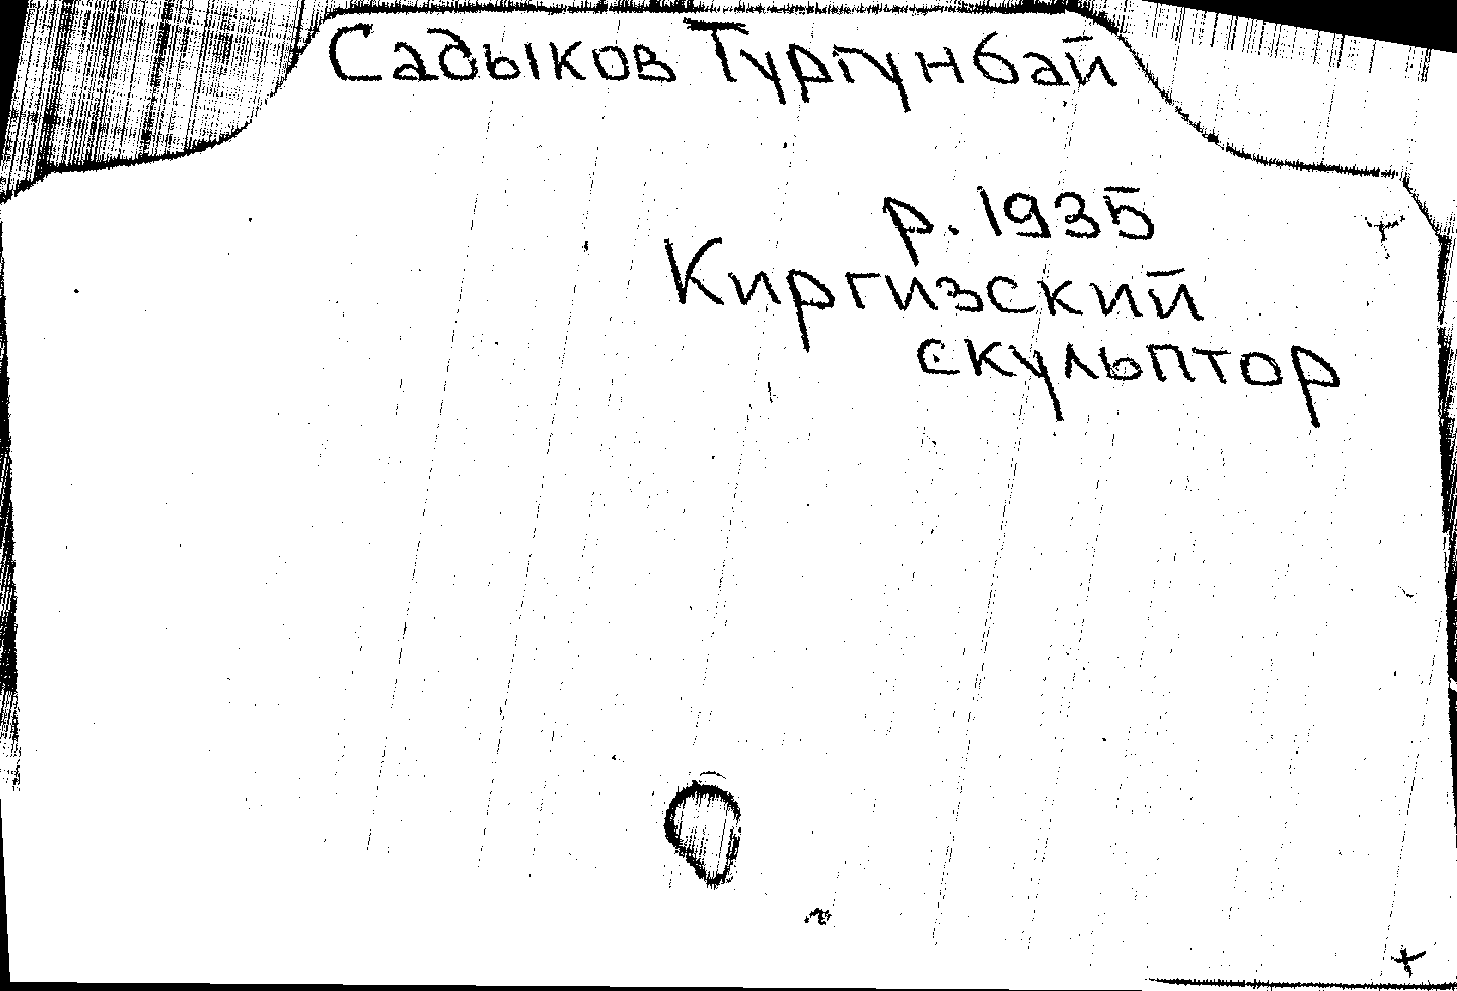 Садыков Тургунбай
р. 1935
Киргизский
скульптор